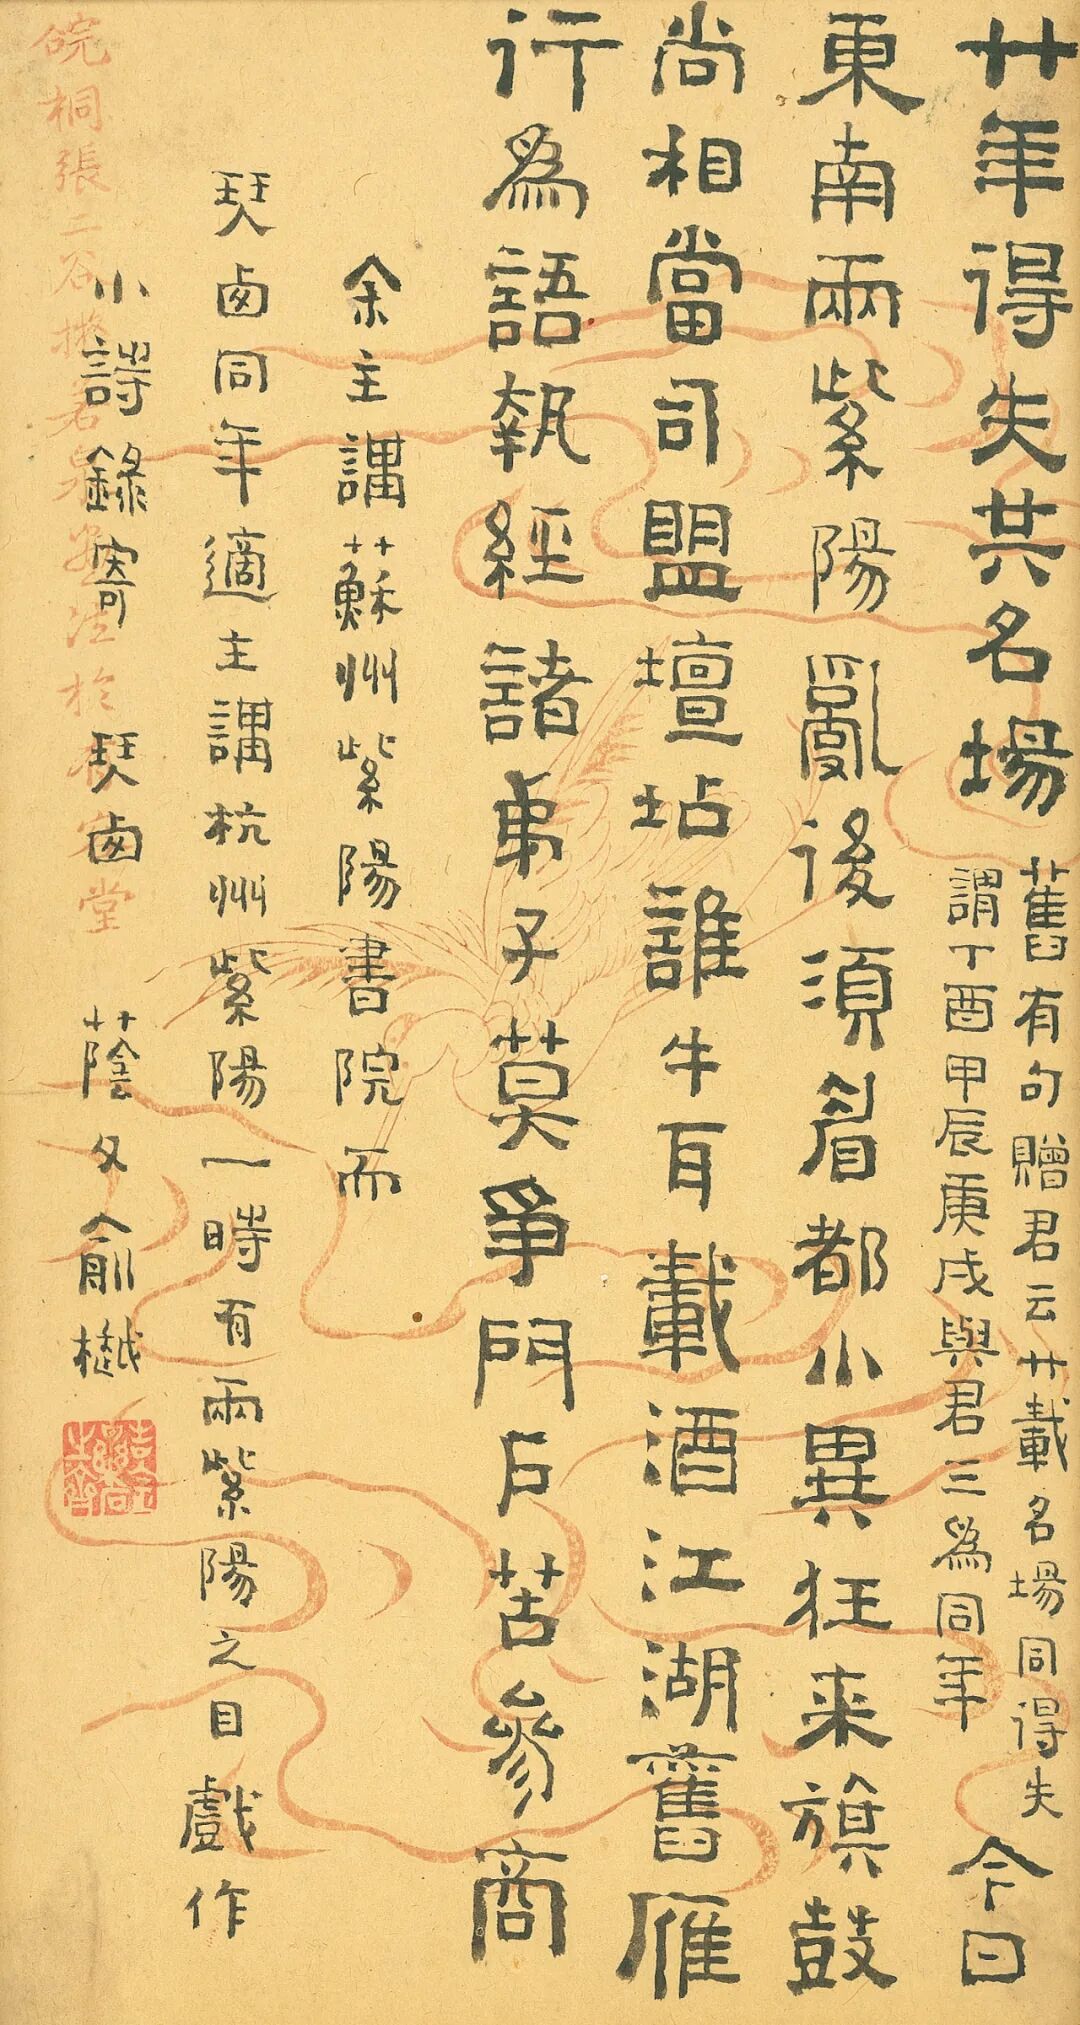 廿年得失共名場
舊有句贈君云廿載名場同得失
謂丁酉甲辰庚戌與君三為同年
今日
東南兩紫陽亂後須眉都小異狂來旗鼓
尚相當司盟壇坫誰牛耳載酒江湖舊雁
行為語執經諸弟子莫爭門戶苦參商
余主講蘇州紫陽書院而
琹鹵同年適主講杭州紫陽一時有兩紫陽之目戲作
小詩錄寄 琹鹵 蔭父俞樾
皖桐張二谷
堂